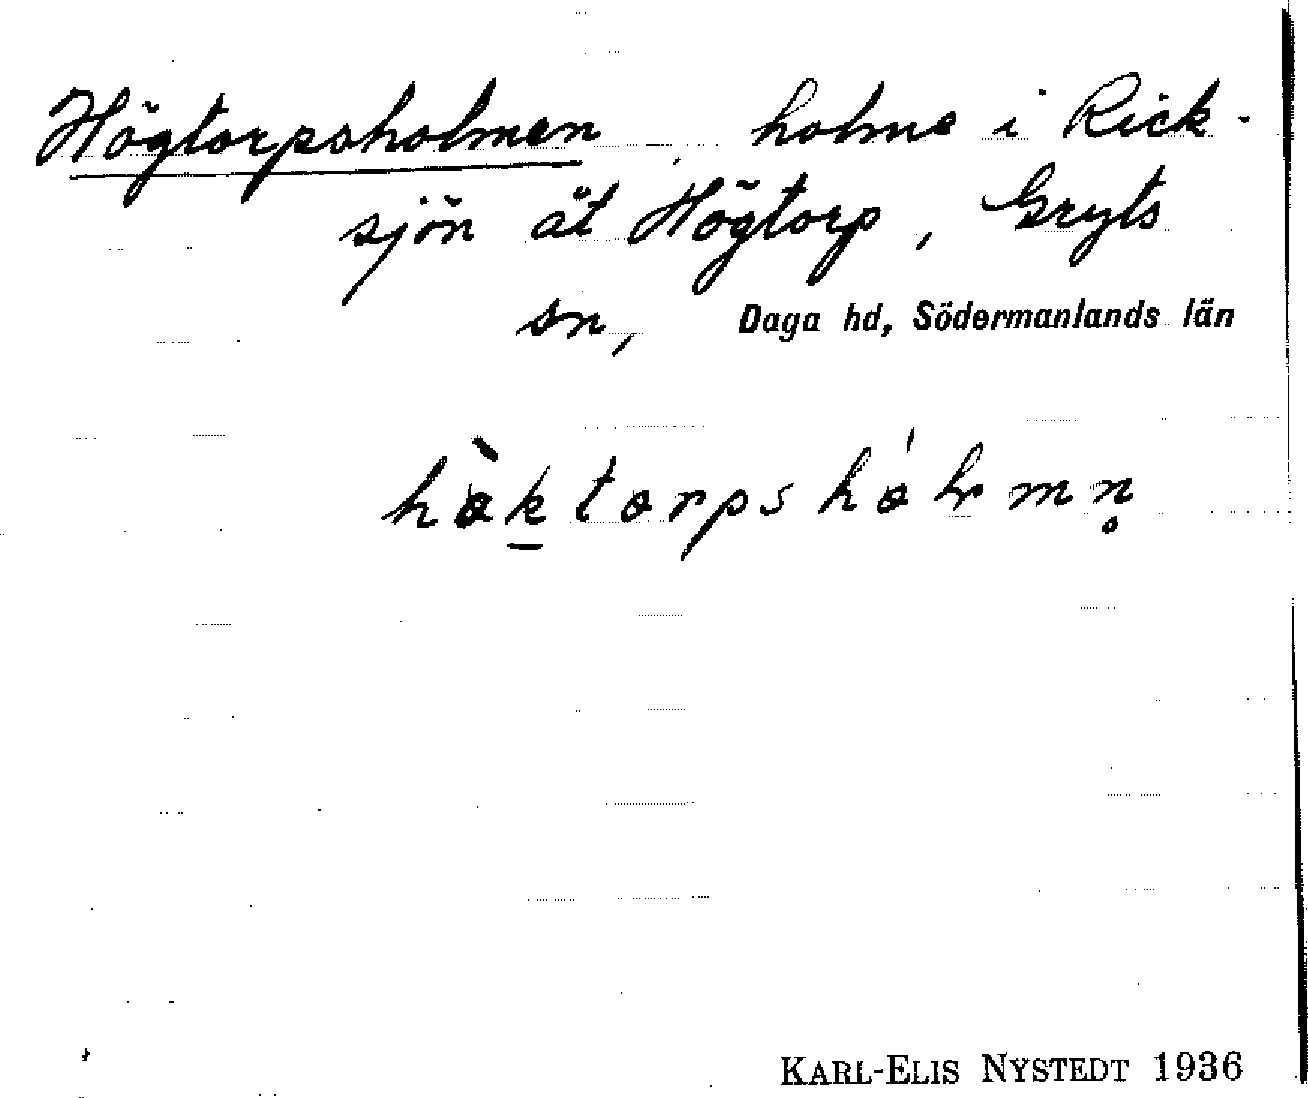 Högtorpsholmen, holme i Rick-
sjön åt Högtorp, Gryts
sn, Daga hd, Södermanlands län
hàk̲torpshólmn̥
KARL-ELIS NYSTEDT 1936